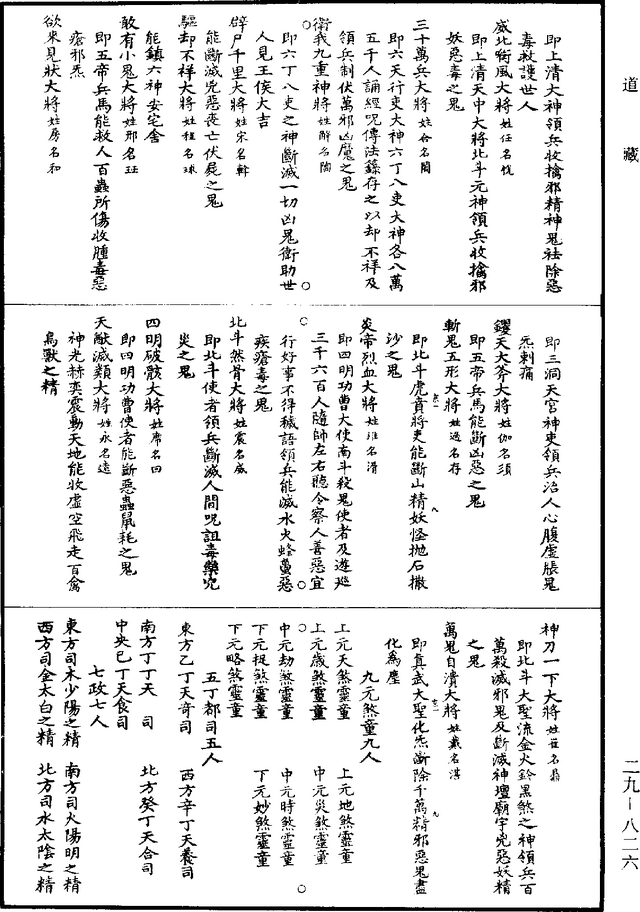 道藏
即上清大神領兵收擒邪精神鬼祛除惡
毒救護世人
威北衛風大將姓任名忱
即上清天中大將北斗元神領兵收擒邪
妖惡毒之鬼
三十萬兵大將姓合名閞
即六天行吏大神六丁八吏大神各八萬
五千人誦經呪傳法籙存之以却不祥及
領兵制伏萬邪凶魔之鬼
衛我九重神將姓解名陶
即六丁八吏之神斷滅一切凶鬼衛助世
人見王侯大吉
辟尸千里大將姓宋名幹
能斷滅兇惡喪亡伏屍之鬼
驅却不祥大將姓程名球
能鎮六神安宅舍
敢有小鬼大將姓那名玨
即五帝兵馬能救人百蟲所傷收腫毒惡
瘡邪炁
欲來見狀大將姓房名和
即三洞天官神吏領兵治人心腹虛脹鬼
炁刺痛
鑊天大斧大將姓伽名須
即五帝兵馬能斷凶惡之鬼
斬鬼五形大將姓過名存
即北斗虎賁將吏能斷山精妖怪拋石撒
沙之鬼
炎帝烈血大將姓班名滑
即四明功曹大使南斗殺鬼使者及遊巡
三千六百人隨師左右聽令察人善惡宜
行好事不得穢語領兵能滅水火蜂蠆惡
疾瘡毒之鬼
北斗然骨大將姓震名威
即北斗使者領兵斷滅人間呪詛毒藥㳄
炎之鬼
四明破骸大將姓席名曰
即四明功曹使者能斷惡蟲鼠耗之鬼
天猷滅類大將姓永名遠
神光赫奕震動天地能收虛空飛走百禽
鳥獸之精
神刀一下大將姓崔名鼎
即北斗大聖流金火鈴黑煞之神領兵百
萬殺滅邪鬼及斷滅神壇廟宇兇惡妖精
之鬼
萬鬼自潰大將姓戴名湛
即真武大聖化炁斷除千萬精邪惡鬼盡
化為塵
九元煞童九人
上元天煞靈童　上元地煞靈童
上元歲煞靈童　中元災煞靈童
中元劫煞靈童　中元時煞靈童
下元捉煞靈童　下元妙煞靈童
下元略煞靈童
五丁都司五人
東方乙丁天奇司　西方辛丁天養司
南方丁丁天　司　北方癸丁天合司
中央己丁天食司
七政七人
東方司木少陽之精　南方司火陽明之精
西方司金太白之精　北方司水太陰之精
二九—八二六